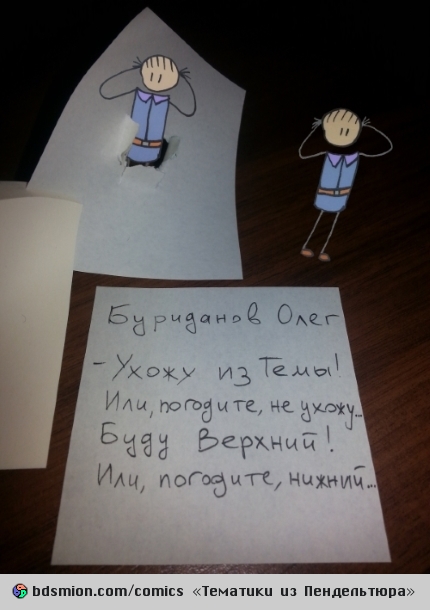 Буриданов Олег
- Ухожу из Темы!
Или, погодите, не ухожу...
Буду Верхний!
Или, погодите, нижний...
bdsmion.com/comics «Тематики из Пендельтюра»